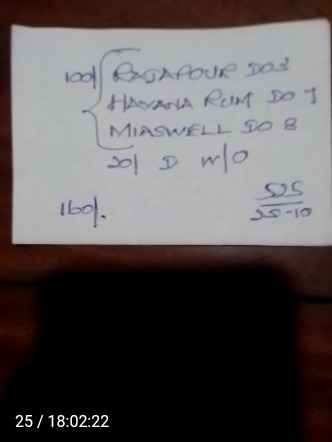 100/ { RAJAPOUR DO 3
HAVANA RUM DO 9
MIASWELL DO 8
20/ D W/O
160/.
525
25-10
25 / 18:02:22